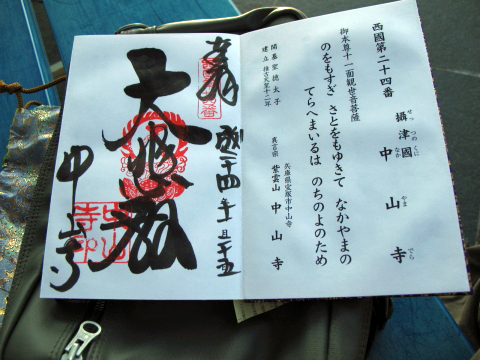 西國第二十四番
攝津國 中山寺
せっつのくに なかやまでら
御本尊十一面観世音菩薩
のをもすぎ さとをもゆきて なかやまの
てらへまいるは のちのよのため
兵庫県宝塚市中山寺
真言宗 紫雲山 中山寺
開基聖徳太子
建立
奉拝
平成二十四年
大悲殿
中山寺
中山寺印